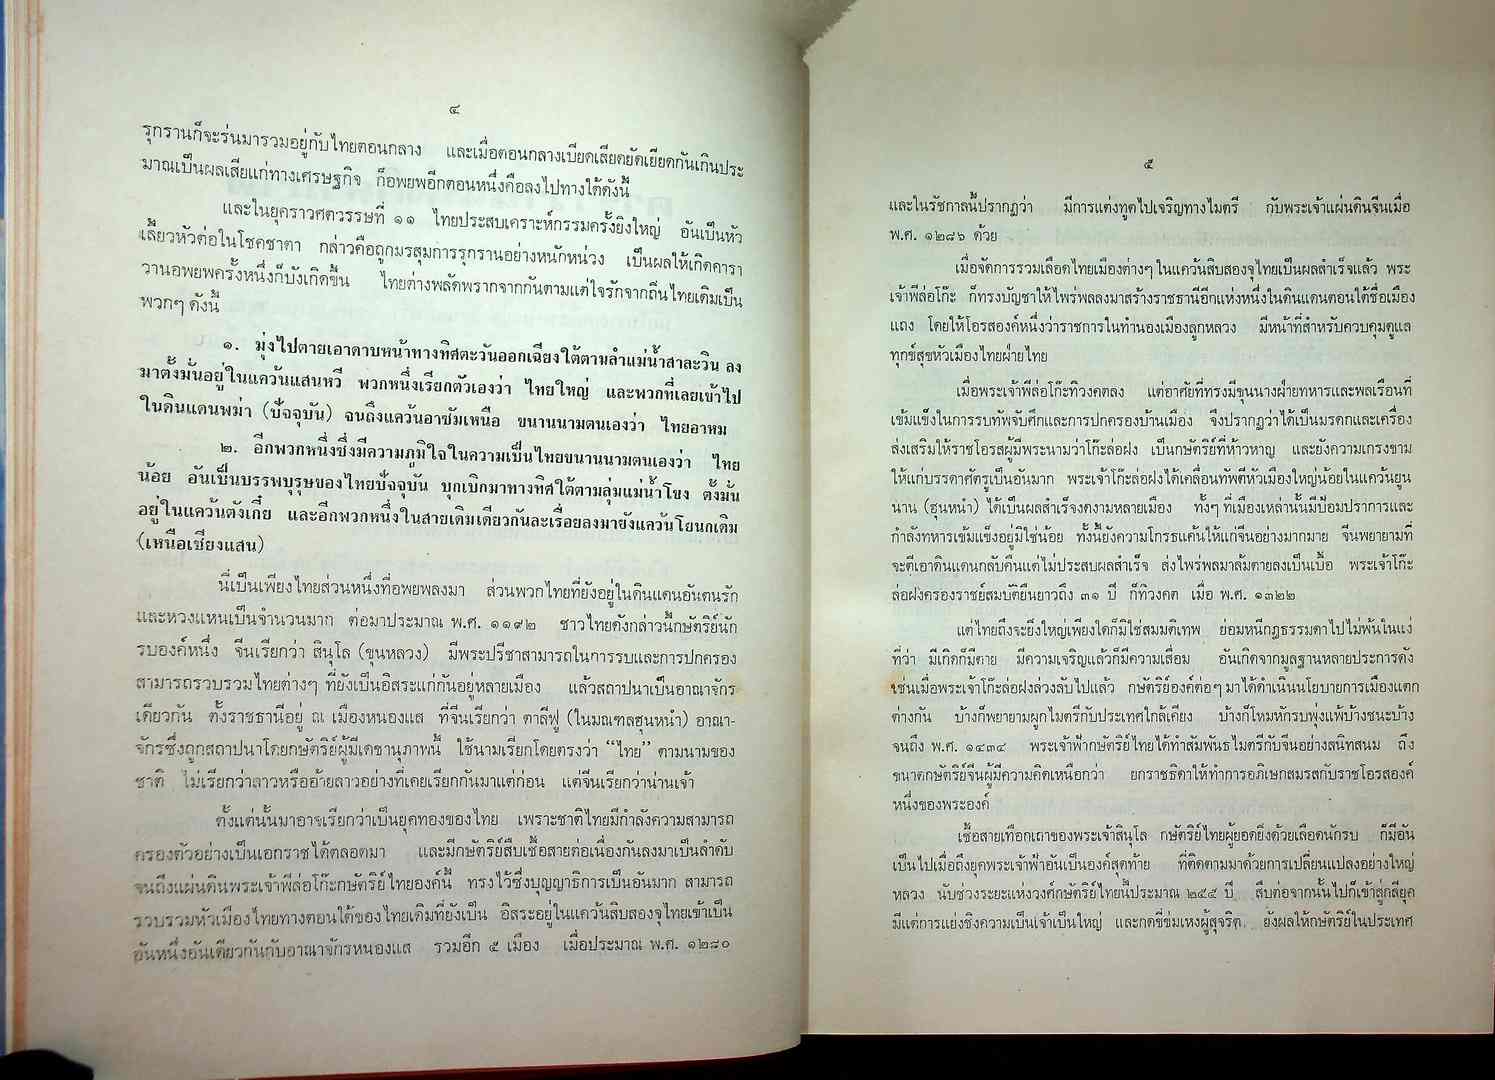 ๔
รุกรานก็จะร่นมารวมอยู่กับไทยตอนกลาง และเมื่อตอนกลางเบียดเสียดยัดเยียดกันเกินประ
มาณเป็นผลเสียแก่ทางเศรษฐกิจ ก็อพยพอีกตอนหนึ่งคือลงไปทางใต้ดังนี้
และในยุคราวศตวรรษที่ ๑๑ ไทยประสบเคราะห์กรรมครั้งยิ่งใหญ่ อันเป็นหัว
เลี้ยวหัวต่อในโชคชาตา กล่าวคือถูกมรสุมการรุกรานอย่างหนักหน่วง เป็นผลให้เกิดคารา
วานอพยพครั้งหนึ่งก็บังเกิดขึ้น ไทยต่างพลัดพรากจากกันตามแต่ใจรักจากถิ่นไทยเดิมเป็น
พวกๆ ดังนี้
๑. มุ่งไปตายเอาดาบหน้าทางทิศตะวันออกเฉียงใต้ตามลำแม่น้ำสาละวิน ลง
มาตั้งมั่นอยู่ในแคว้นแสนหวี พวกหนึ่งเรียกตัวเองว่า ไทยใหญ่ และพวกที่เลยเข้าไป
ในดินแดนพม่า (ปัจจุบัน) จนถึงแคว้นอาซัมเหนือ ขนานนามตนเองว่า ไทยอาหม
๒. อีกพวกหนึ่งซึ่งมีความภูมิใจในความเป็นไทยขนานนามตนเองว่า ไทย
น้อย อันเป็นบรรพบุรุษของไทยปัจจุบัน บุกเบิกมาทางทิศใต้ตามลุ่มแม่น้ำโขง ตั้งมั่น
อยู่ในแคว้นตังเกี๋ย และอีกพวกหนึ่งในสายเดิมเดียวกันละเรื่อยลงมายังแคว้นโยนกเดิม
(เหนือเชียงแสน)
นี่เป็นเพียงไทยส่วนหนึ่งที่อพยพลงมา ส่วนพวกไทยที่ยังอยู่ในดินแดนอันตนรัก
และหวงแหนเป็นจำนวนมาก ต่อมาประมาณ พ.ศ. ๑๑๙๒ ชาวไทยดังกล่าวนี้กษัตริย์นัก
รบองค์หนึ่ง จีนเรียกว่า สินุโล (ขุนหลวง) มีพระปรีชาสามารถในการรบและการปกครอง
สามารถรวบรวมไทยต่างๆ ที่ยังเป็นอิสระแก่กันอยู่หลายเมือง แล้วสถาปนาเป็นอาณาจักร
เดียวกัน ตั้งราชธานีอยู่ ณ เมืองหนองแส ที่จีนเรียกว่า ตาลีฟู (ในมณฑลฮุนหนำ) อาณา-
จักรซึ่งถูกสถาปนาโดยกษัตริย์ผู้มีเดชานุภาพนี้ ใช้นามเรียกโดยตรงว่า “ไทย” ตามนามของ
ชาติ ไม่เรียกว่าลาวหรืออ้ายลาวอย่างที่เคยเรียกกันมาแต่ก่อน แต่จีนเรียกว่าน่านเจ้า
ตั้งแต่นั้นมาอาจเรียกว่าเป็นยุคทองของไทย เพราะชาติไทยมีกำลังความสามารถ
ครองตัวอย่างเป็นเอกราชได้ตลอดมา และมีกษัตริย์สืบเชื้อสายต่อเนื่องกันลงมาเป็นลำดับ
จนถึงแผ่นดินพระเจ้าพีล่อโก๊ะกษัตริย์ไทยองค์นี้ ทรงไว้ซึ่งบุญญาธิการเป็นอันมาก สามารถ
รวบรวมหัวเมืองไทยทางตอนใต้ของไทยเดิมที่ยังเป็น อิสระอยู่ในแคว้นสิบสองจุไทยเข้าเป็น
อันหนึ่งอันเดียวกันกับอาณาจักรหนองแส รวมอีก ๕ เมือง เมื่อประมาณ พ.ศ. ๑๒๘๐
๕
และในรัชกาลนี้ปรากฏว่า มีการแต่งทูตไปเจริญทางไมตรี กับพระเจ้าแผ่นดินจีนเมื่อ
พ.ศ. ๑๒๘๖ ด้วย
เมื่อจัดการรวมเลือดไทยเมืองต่างๆ ในแคว้นสิบสองจุไทยเป็นผลสำเร็จแล้ว พระ
เจ้าพีล่อโก๊ะ ก็ทรงบัญชาให้ไพร่พลลงมาสร้างราชธานีอีกแห่งหนึ่งในดินแดนตอนใต้ชื่อเมือง
แถง โดยให้โอรสองค์หนึ่งว่าราชการในทำนองเมืองลูกหลวง มีหน้าที่สำหรับควบคุมดูแล
ทุกข์สุขหัวเมืองไทยฝ่ายไทย
เมื่อพระเจ้าพีล่อโก๊ะทิวงคตลง แต่อาศัยที่ทรงมีขุนนางฝ่ายทหารและพลเรือนที่
เข้มแข็งในการรบทัพจับศึกและการปกครองบ้านเมือง จึงปรากฏว่าได้เป็นมรดกและเครื่อง
ส่งเสริมให้ราชโอรสผู้มีพระนามว่าโก๊ะล่อฝง เป็นกษัตริย์ที่ห้าวหาญ และยังความเกรงขาม
ให้แก่บรรดาศัตรูเป็นอันมาก พระเจ้าโก๊ะล่อฝงได้เคลื่อนทัพตีหัวเมืองใหญ่น้อยในแคว้นยูน
นาน (ฮุนหนำ) ได้เป็นผลสำเร็จงดงามหลายเมือง ทั้งๆ ที่เมืองเหล่านั้นมีป้อมปราการและ
กำลังทหารเข้มแข็งอยู่มิใช่น้อย ทั้งนี้ยังความโกรธแค้นให้แก่จีนอย่างมากมาย จีนพยายามที่
จะตีเอาดินแดนกลับคืนแต่ไม่ประสบผลสำเร็จ ส่งไพร่พลมาล้มตายลงเป็นเบือ พระเจ้าโก๊ะ
ล่อฝงครองราชย์สมบัติยืนยาวถึง ๓๑ ปี ก็ทิวงคต เมื่อ พ.ศ. ๑๓๒๒
แต่ไทยถึงจะยิ่งใหญ่เพียงใดก็มิใช่สมมติเทพ ย่อมหนีกฎธรรมดาไปไม่พ้นในแง่
ที่ว่า มีเกิดก็มีตาย มีความเจริญแล้วก็มีความเสื่อม อันเกิดจากมูลฐานหลายประการดัง
เช่นเมื่อพระเจ้าโก๊ะล่อฝงล่วงลับไปแล้ว กษัตริย์องค์ต่อๆ มาได้ดำเนินนโยบายการเมืองแตก
ต่างกัน บ้างก็พยายามผูกไมตรีกับประเทศใกล้เคียง บ้างก็โหมหักรบพุ่งแพ้บ้างชนะบ้าง
จนถึง พ.ศ. ๑๔๓๔ พระเจ้าฟ้ากษัตริย์ไทยได้ทำสัมพันธไมตรีกับจีนอย่างสนิทสนม ถึง
ขนาดกษัตริย์จีนผู้มีความคิดเหนือกว่า ยกราชธิดาให้ทำการอภิเษกสมรสกับราชโอรสองค์
หนึ่งของพระองค์
เชื้อสายเทือกเถาของพระเจ้าสินุโล กษัตริย์ไทยผู้ยอดยิ่งด้วยเลือดนักรบ ก็มีอัน
เป็นไปเมื่อถึงยุคพระเจ้าฟ้าอันเป็นองค์สุดท้าย ที่ติดตามมาด้วยการเปลี่ยนแปลงอย่างใหญ่
หลวง นับช่วงระยะแห่งวงศ์กษัตริย์ไทยนี้ประมาณ ๒๕๕ ปี สืบต่อจากนั้นไปก็เข้าสู่กลียุค
มีแต่การแย่งชิงความเป็นเจ้าเป็นใหญ่ และกดขี่ข่มเหงผู้สุจริต ยังผลให้กษัตริย์ในประเทศ